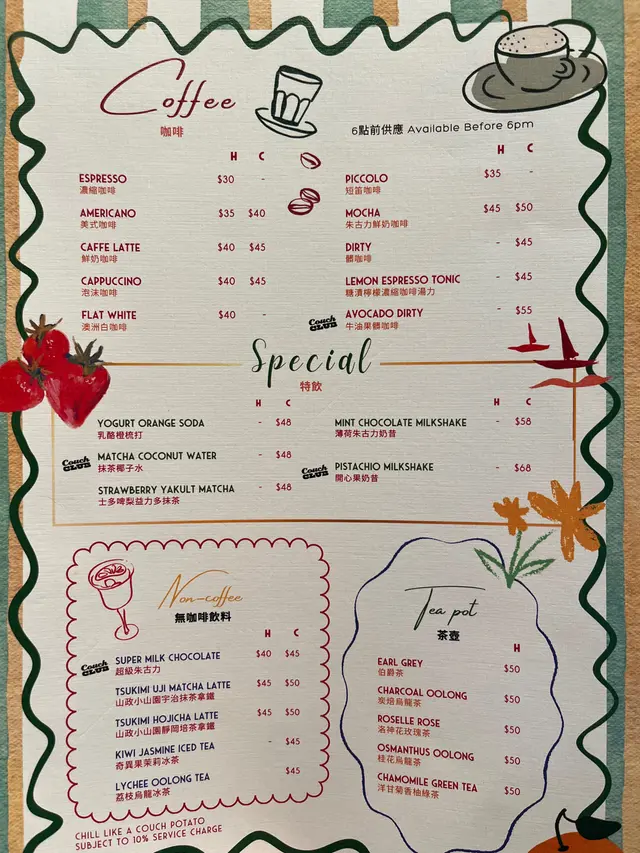 Coffee
咖啡
6點前供應 Available Before 6pm
H C
ESPRESSO $30 -
濃縮咖啡
AMERICANO $35 $40
美式咖啡
CAFFE LATTE $40 $45
鮮奶咖啡
CAPPUCCINO $40 $45
泡沫咖啡
FLAT WHITE $40 -
澳洲白咖啡
H C
PICCOLO $35 -
短笛咖啡
MOCHA $45 $50
朱古力鮮奶咖啡
DIRTY - $45
髒咖啡
LEMON ESPRESSO TONIC - $45
糖漬檸檬濃縮咖啡湯力
Couch CLUB AVOCADO DIRTY - $55
牛油果髒咖啡
Special
特飲
H C
YOGURT ORANGE SODA - $48
乳酪橙梳打
Couch CLUB MATCHA COCONUT WATER - $48
抹茶椰子水
STRAWBERRY YAKULT MATCHA - $48
士多啤梨益力多抹茶
H C
MINT CHOCOLATE MILKSHAKE - $58
薄荷朱古力奶昔
Couch CLUB PISTACHIO MILKSHAKE - $68
開心果奶昔
Non-coffee
無咖啡飲料
H C
Couch CLUB SUPER MILK CHOCOLATE $40 $45
超級朱古力
TSUKIMI UJI MATCHA LATTE $45 $50
山政小山園宇治抹茶拿鐵
TSUKIMI HOJICHA LATTE $45 $50
山政小山園靜岡培茶拿鐵
KIWI JASMINE ICED TEA - $45
奇異果茉莉冰茶
LYCHEE OOLONG TEA $45
荔枝烏龍冰茶
Tea pot
茶壺
H
EARL GREY $50
伯爵茶
CHARCOAL OOLONG $50
炭焙烏龍茶
ROSELLE ROSE $50
洛神花玫瑰茶
OSMANTHUS OOLONG $50
桂花烏龍茶
CHAMOMILE GREEN TEA $50
洋甘菊香柚綠茶
CHILL LIKE A COUCH POTATO
SUBJECT TO 10% SERVICE CHARGE